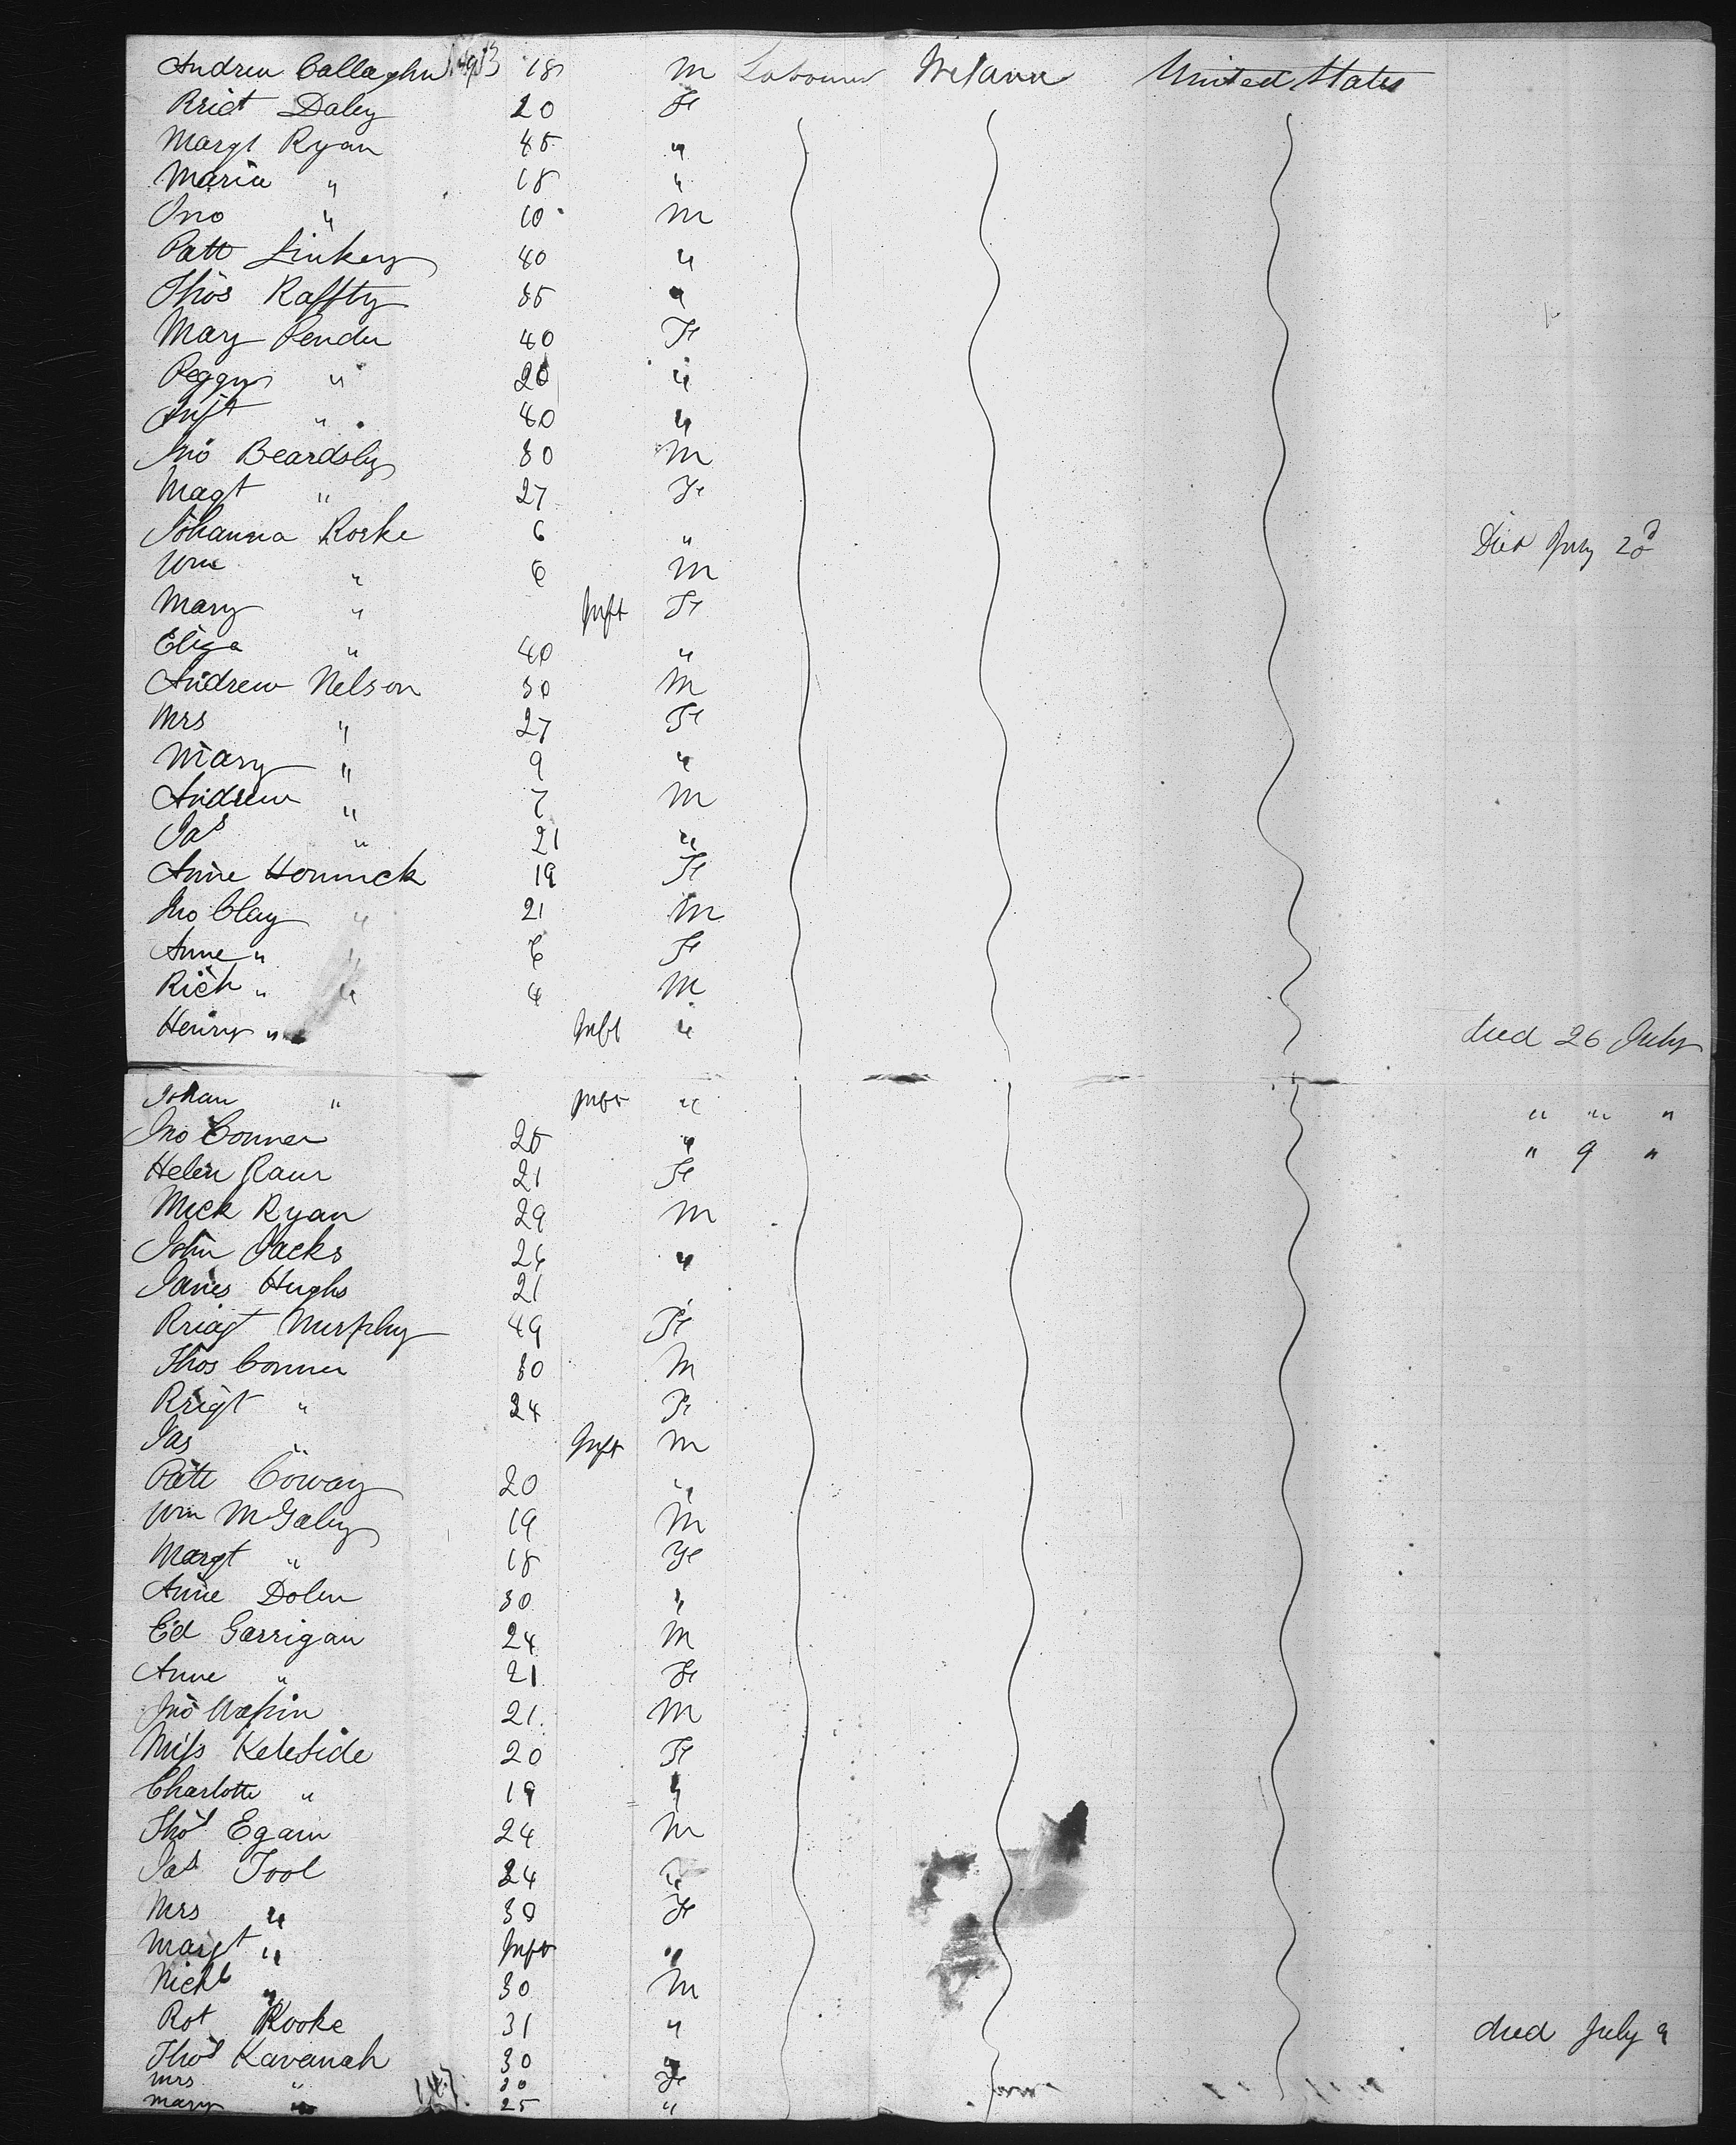 Andrew Callaghn 18 M Labourer Ireland United States
Bridt Daley 20 Fe
Margt Ryan 45 "
Maria " 18 "
Jno " 10 M
Patt Linkey 40 "
Thos Raffty 35 "
Mary Pender 40 Fe
Peggy " 20 "
" 40 "
Jno Beardsly 30 M
Magt " 27 Fe
Johanna Rorke 6 " Died July 20
Wm " 6 M
Mary " Inft Fe
Eliza " 40 "
Andrew Nelson 30 M
Mrs " 27 Fe
Mary " 9 "
Andrew " 7 M
Jas " 21 "
Anne 19 Fe
Jno Clay 21 M
Anne " 6 Fe
Rich " 4 M
Henry " Inft " died 26 July
Johan " Inft " " " "
Jno Conner 25 " " 9 "
Helen 21 Fe
Mick Ryan 29 M
John Jacks 26 "
James Hughs 21
Murphy 49 Fe
Thos Conner 30 M
Brigt " 24 Fe
Jas " Inft M
Patt Coway 20 "
Wm McGaley 19 M
Margt " 18 Fe
Anne Dolen 30 "
Ed Garrigan 24 M
Anne " 21 Fe
Jno 21 M
Miss Keleside 20 Fe
Charlotte " 19 "
Thos Egam 24 M
Jas Tool 24 "
Mrs " 30 Fe
Margt " Inft "
Nichl " 30 M
Rot Rooke 31 " died July 9
Thos Kavanah 30 "
Mrs " 30 Fe
Mary " 25 "
147